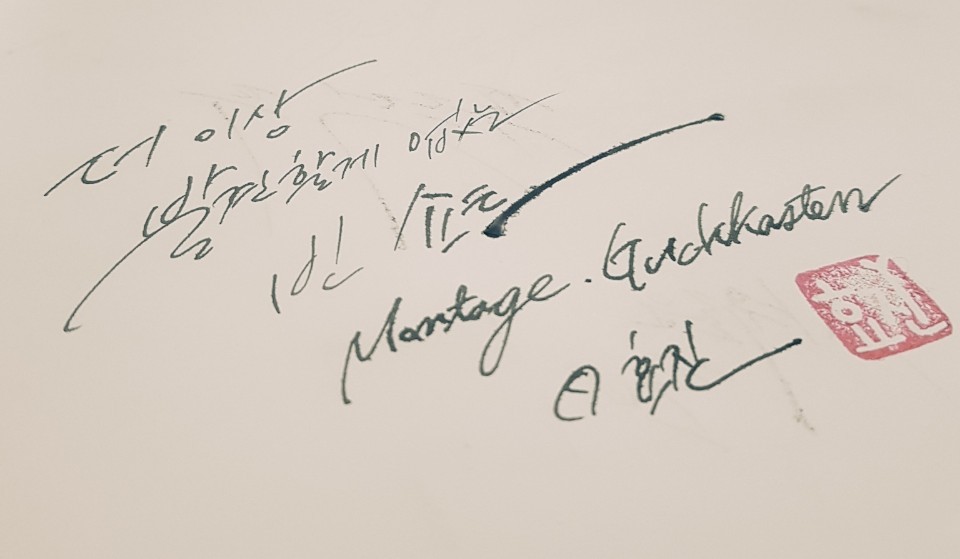 더 이상
발견할게 없는
빈
Montage. Guckkasten